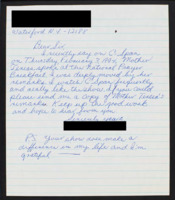 Dear Sir
I recently saw on C-Span
on Thursday February 3, 1994 Mother
Teresa speak at the National Prayer
Breakfast. I was deeply moved by her
remarks. I watch C-Span frequently
and really like the show. If you could
please send me a copy of Mother Teresa's
remarks. Keep up the good work
and hope to hear from you
PS. Your show does make a
difference in my life and I'm
grateful